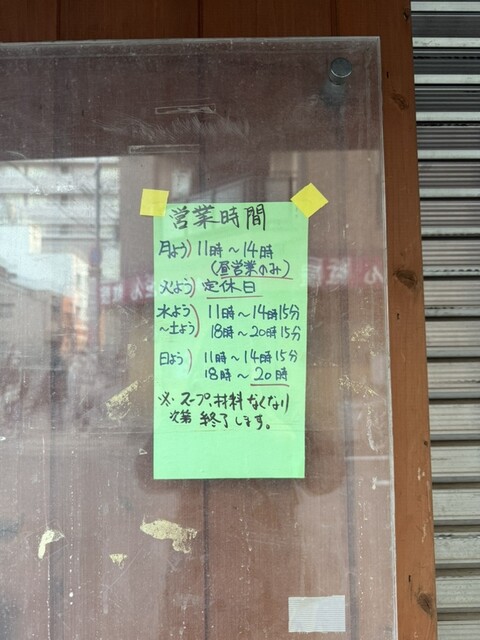 営業時間
月よう) 11時～14時
(昼営業のみ)
火よう) 定休日
水よう) 11時～14時15分
～土よう) 18時～20時15分
日よう) 11時～14時15分
18時～20時
※ スープ、材料 なくなり
次第 終了します。